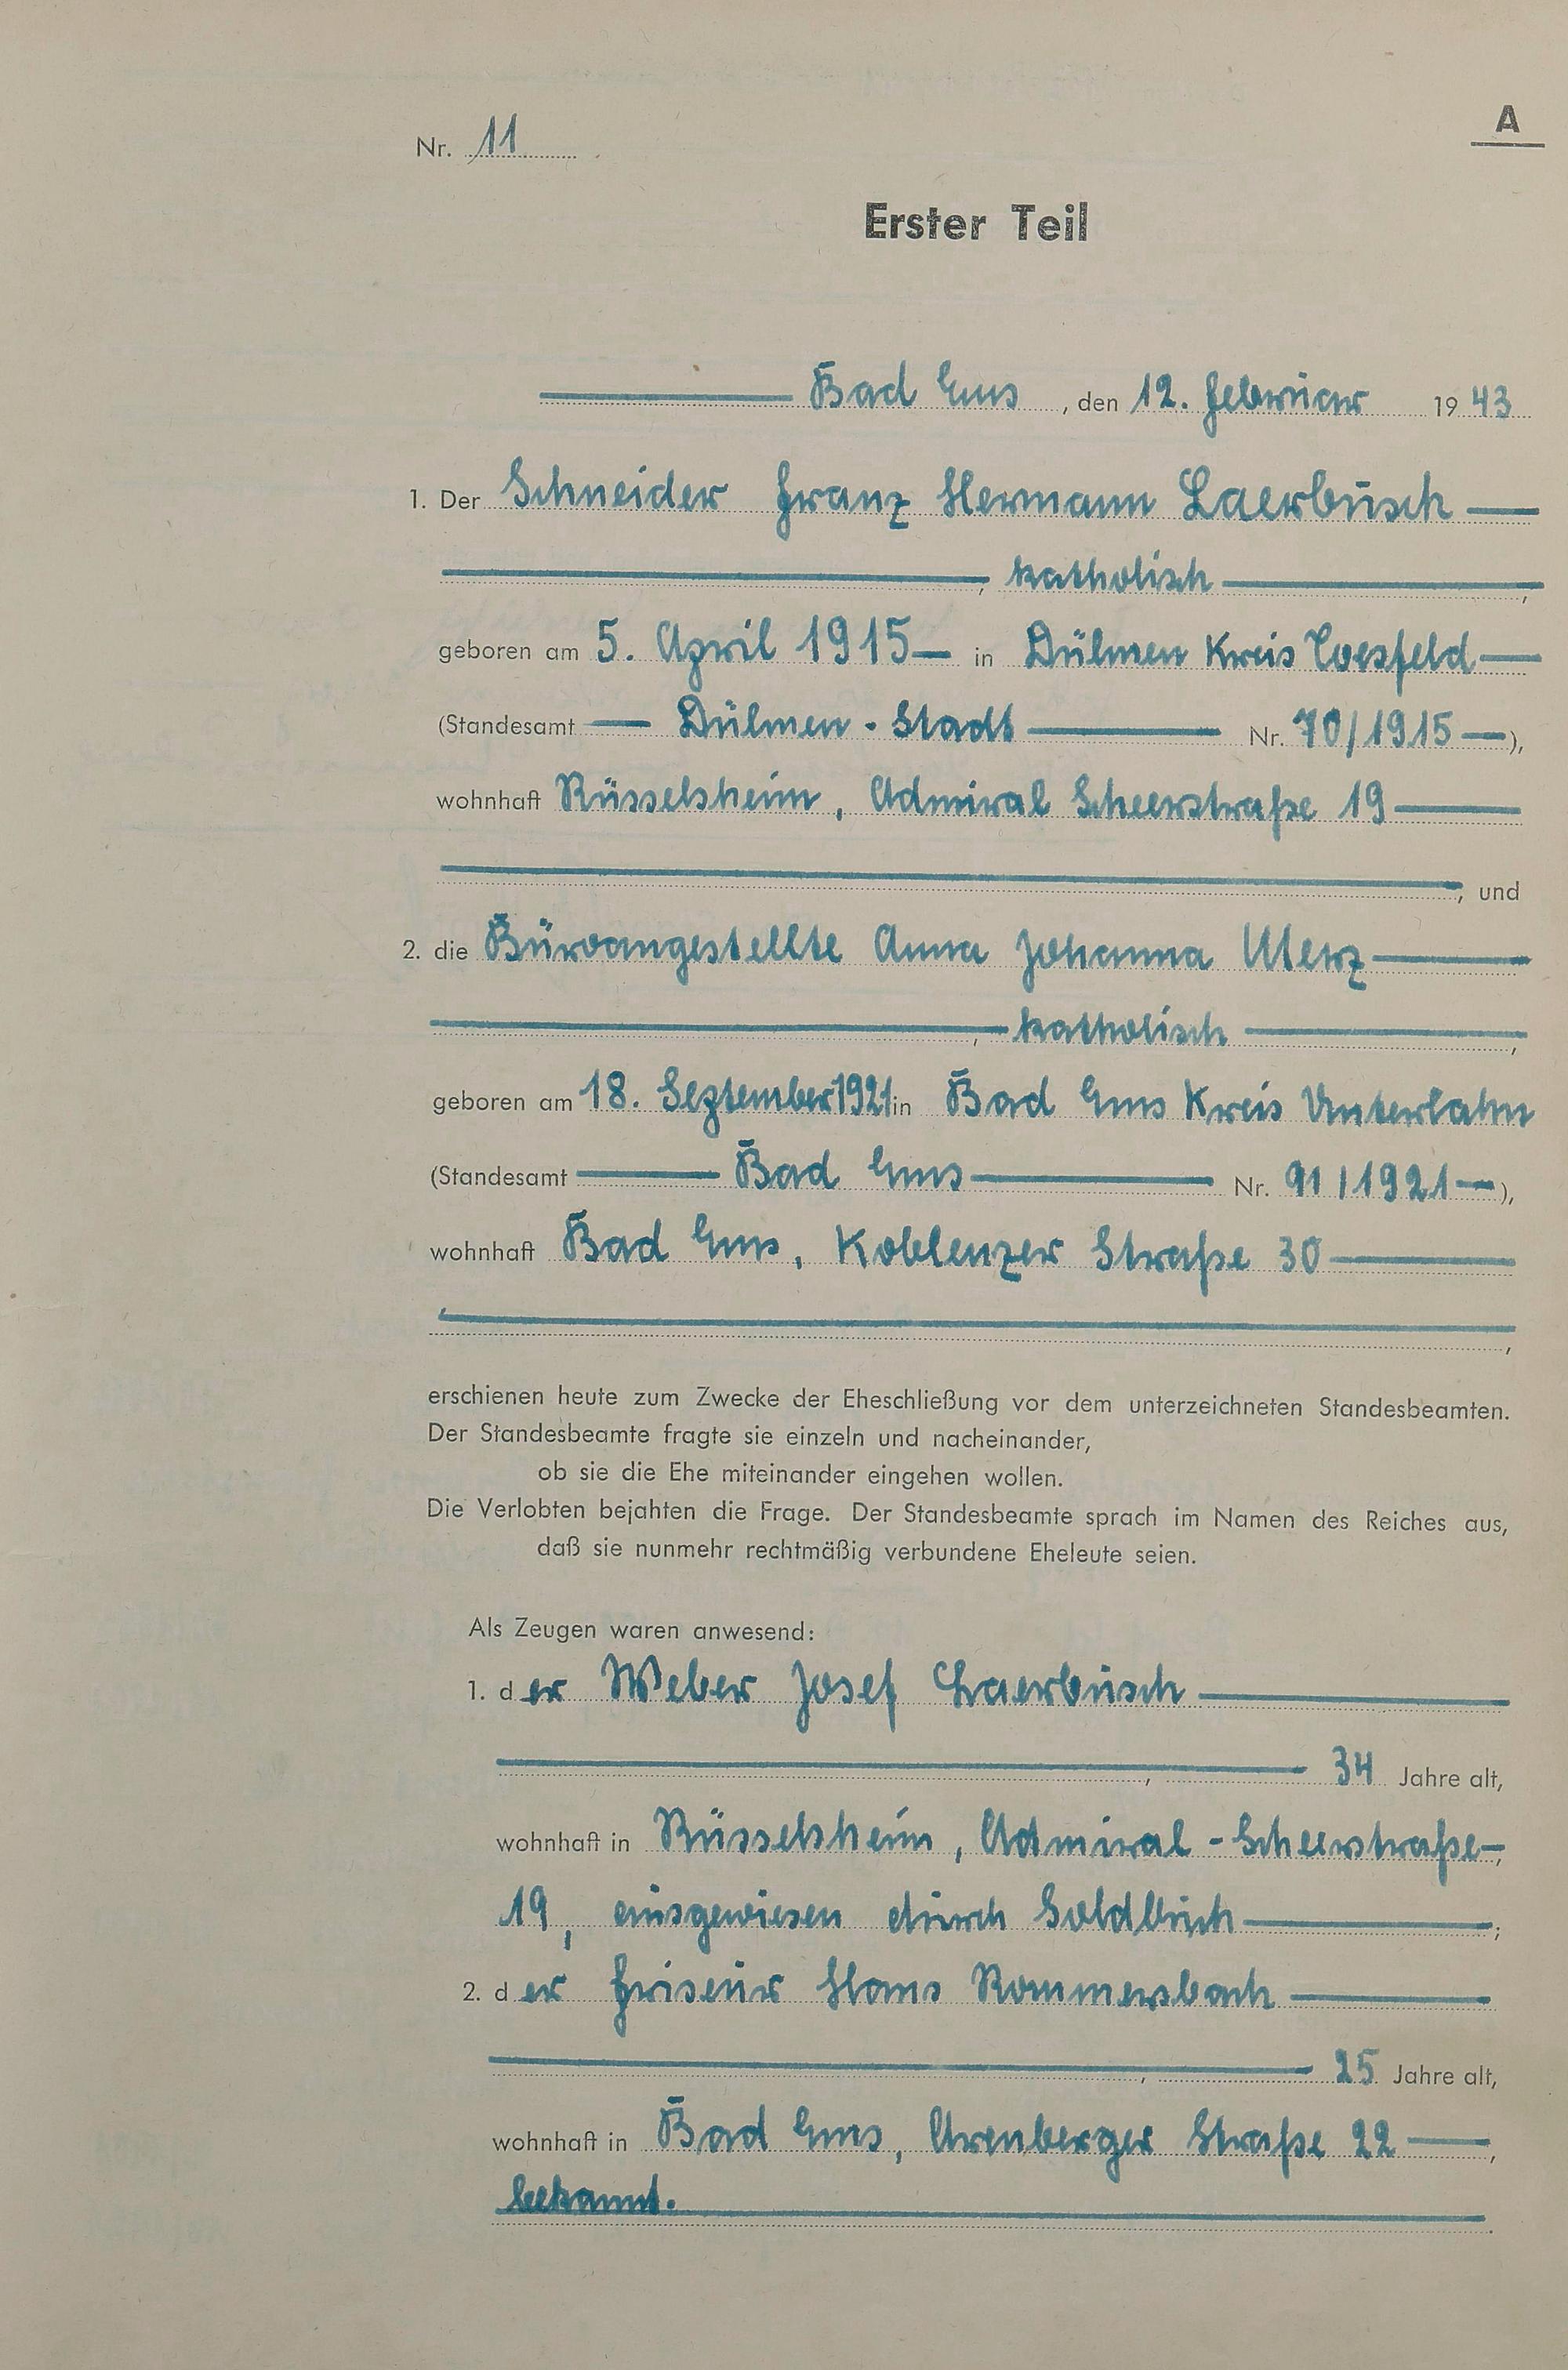 A
Nr. 11
Erster Teil
Bad Ems, den 12. Februar 1943
1. Der Schneider Franz Hermann Laerbusch
, katholisch,
geboren am 5. April 1915 in Dülmen Kreis Coesfeld
(Standesamt Dülmen-Stadt Nr. 70/1915),
wohnhaft Rüsselsheim, Admiral Scheerstraße 19
, und
2. die Büroangestellte Anna Johanna Merz
, katholisch,
geboren am 18. September 1921 in Bad Ems Kreis Unterlahn
(Standesamt Bad Ems Nr. 91/1921),
wohnhaft Bad Ems, Koblenzer Straße 30
,
erschienen heute zum Zwecke der Eheschließung vor dem unterzeichneten Standesbeamten.
Der Standesbeamte fragte sie einzeln und nacheinander,
ob sie die Ehe miteinander eingehen wollen.
Die Verlobten bejahten die Frage. Der Standesbeamte sprach im Namen des Reiches aus,
daß sie nunmehr rechtmäßig verbundene Eheleute seien.
Als Zeugen waren anwesend:
1. der Weber Josef Laerbusch
, 34 Jahre alt,
wohnhaft in Rüsselsheim, Admiral-Scheerstraße
19, ausgewiesen durch Soldbuch;
2. der Friseur Hans Rommersbach
, 25 Jahre alt,
wohnhaft in Bad Ems, Arenberger Straße 22,
bekannt.